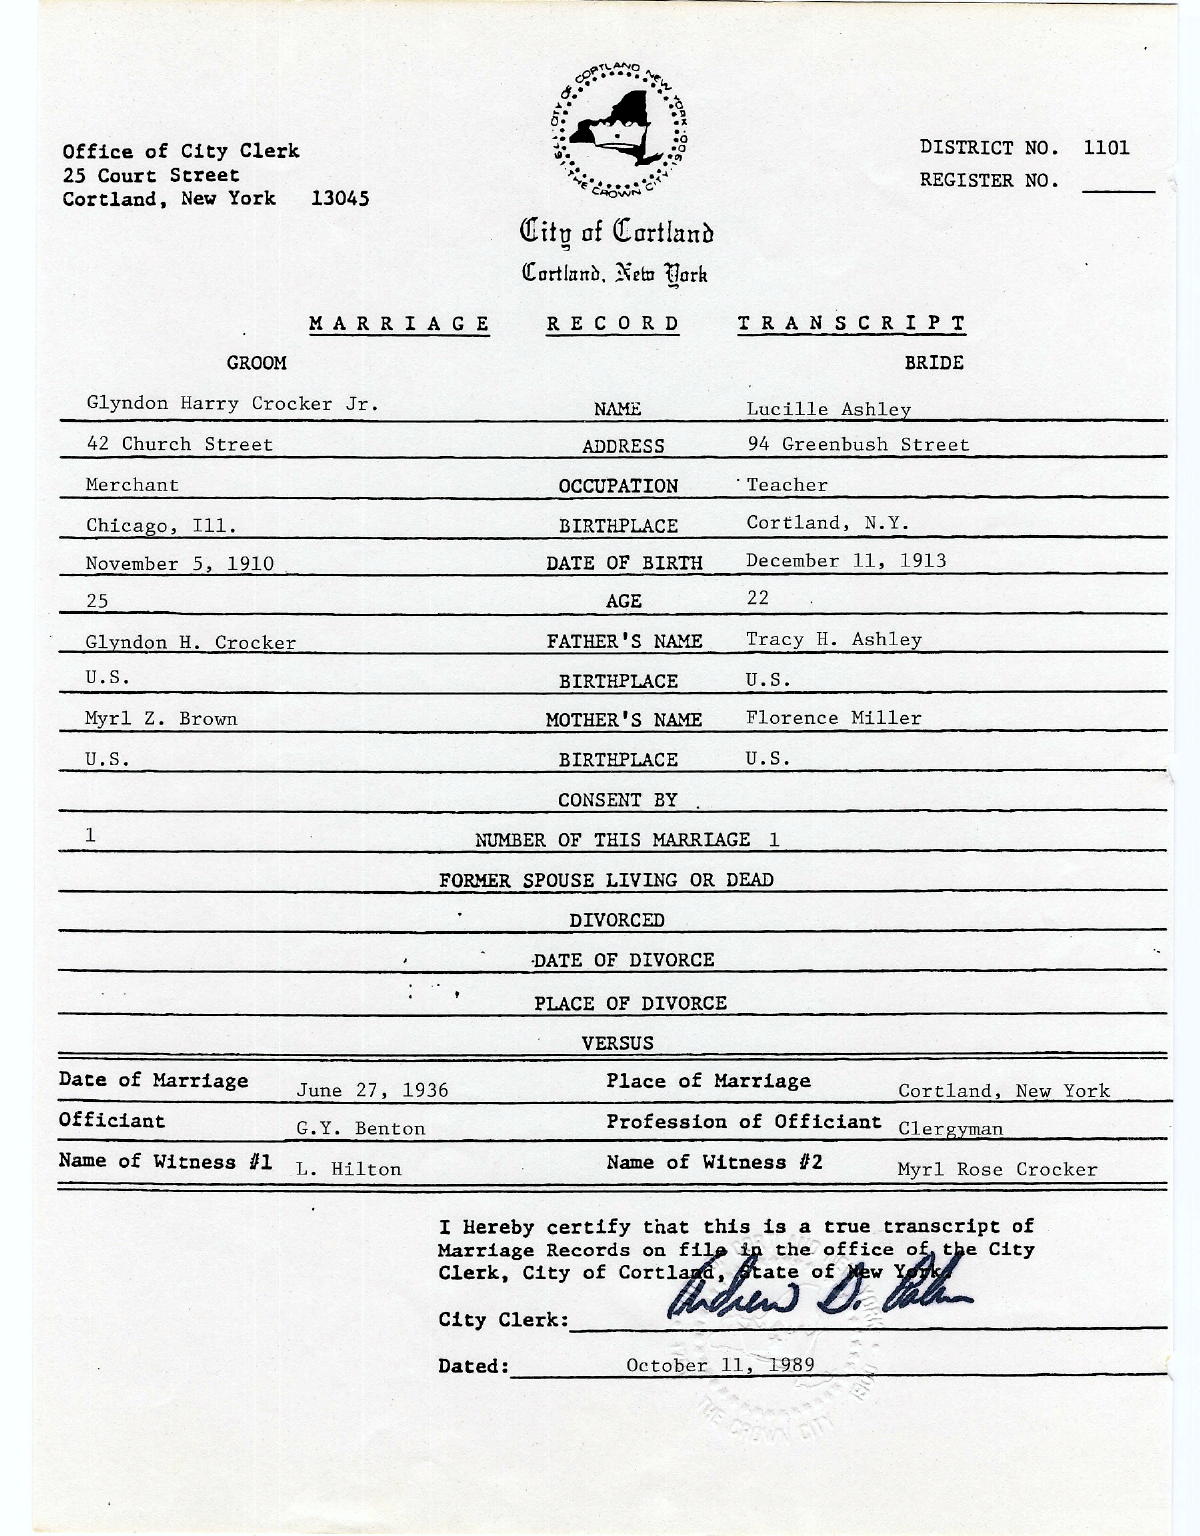 CITY OF CORTLAND NEW YORK · 1900
· THE CROWN CITY ·
Office of City Clerk
25 Court Street
Cortland, New York 13045
DISTRICT NO. 1101
REGISTER NO.
City of Cortland
Cortland, New York
MARRIAGE RECORD TRANSCRIPT
GROOM BRIDE
Glyndon Harry Crocker Jr. NAME Lucille Ashley
42 Church Street ADDRESS 94 Greenbush Street
Merchant OCCUPATION Teacher
Chicago, Ill. BIRTHPLACE Cortland, N.Y.
November 5, 1910 DATE OF BIRTH December 11, 1913
25 AGE 22
Glyndon H. Crocker FATHER'S NAME Tracy H. Ashley
U.S. BIRTHPLACE U.S.
Myrl Z. Brown MOTHER'S NAME Florence Miller
U.S. BIRTHPLACE U.S.
CONSENT BY
1 NUMBER OF THIS MARRIAGE 1
FORMER SPOUSE LIVING OR DEAD
DIVORCED
DATE OF DIVORCE
PLACE OF DIVORCE
VERSUS
Date of Marriage June 27, 1936 Place of Marriage Cortland, New York
Officiant G.Y. Benton Profession of Officiant Clergyman
Name of Witness #1 L. Hilton Name of Witness #2 Myrl Rose Crocker
I Hereby certify that this is a true transcript of
Marriage Records on file in the office of the City
Clerk, City of Cortland, State of New York.
City Clerk: Andrew D.
Dated: October 11, 1989
THE CROWN CITY